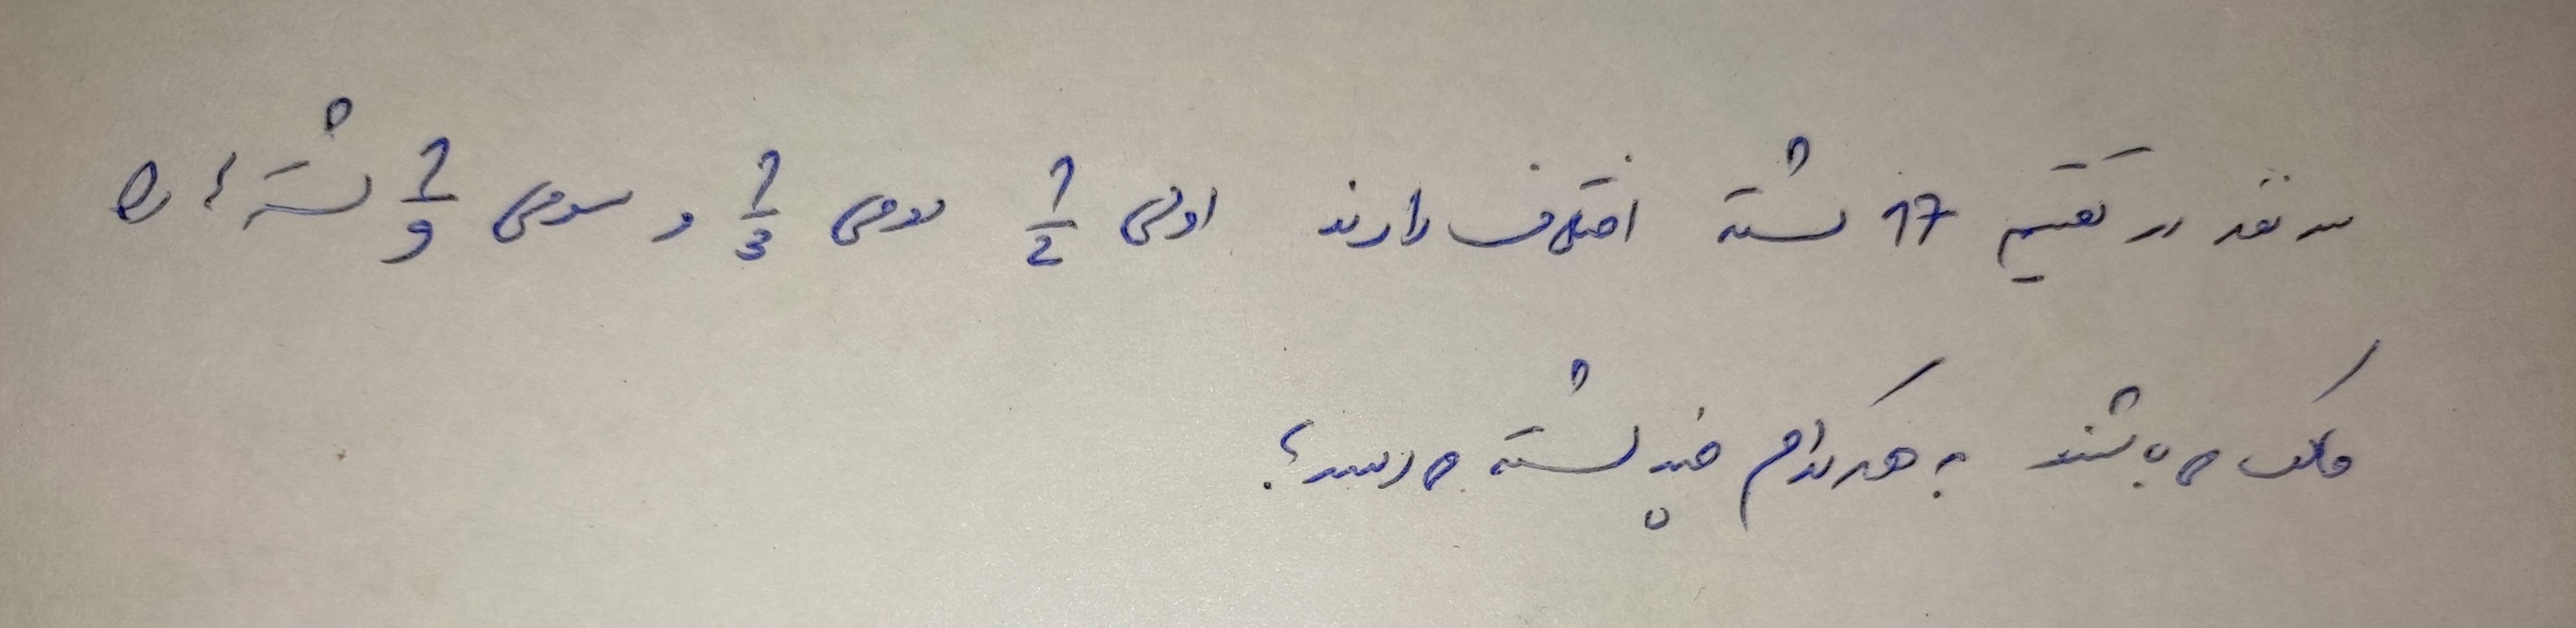 سه نفر در تقسیم 17 شتر اختلاف دارند اولی 1/2 دومی 1/3 و سومی 1/9 شترها را
مالک می باشند به هر کدام چند شتر می رسد؟